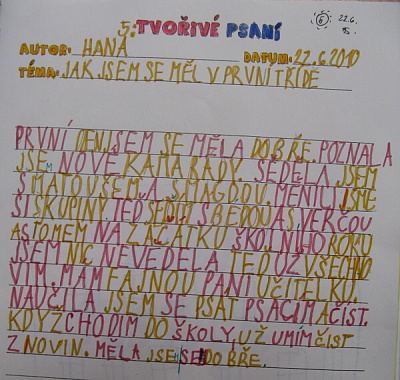 5. TVOŘIVÉ PSANÍ
6 22.6.
AUTOR: HANA DATUM: 22.6.2010
TÉMA: JAK JSEM SE MĚL V PRVNÍ TŘÍDĚ
PRVNÍ DEN JSEM SE MĚLA DOBŘE. POZNALA
JSEM NOVÉ KAMARÁDY. SEDĚLA JSEM
S MATOUŠEM A S MAGDOU. MĚNILI JSME
SI SKUPINY. TEĎ SEDÍM S BEDOU A S VERČOU
A S TOMEM NA ZAČÁTKU ŠKOLNÍHO ROKU
JSEM NIC NEVĚDĚLA TEĎ UŽ VŠECHNO
VÍM. MÁM FAJNOU PANÍ UČITELKU.
NAUČILA JSEM SE PSÁT PSACÍM A ČÍST.
KDYŽ CHODÍM DO ŠKOLY, UŽ UMÍM ČÍST
Z NOVIN. MĚLA JSEM SE DOBŘE.